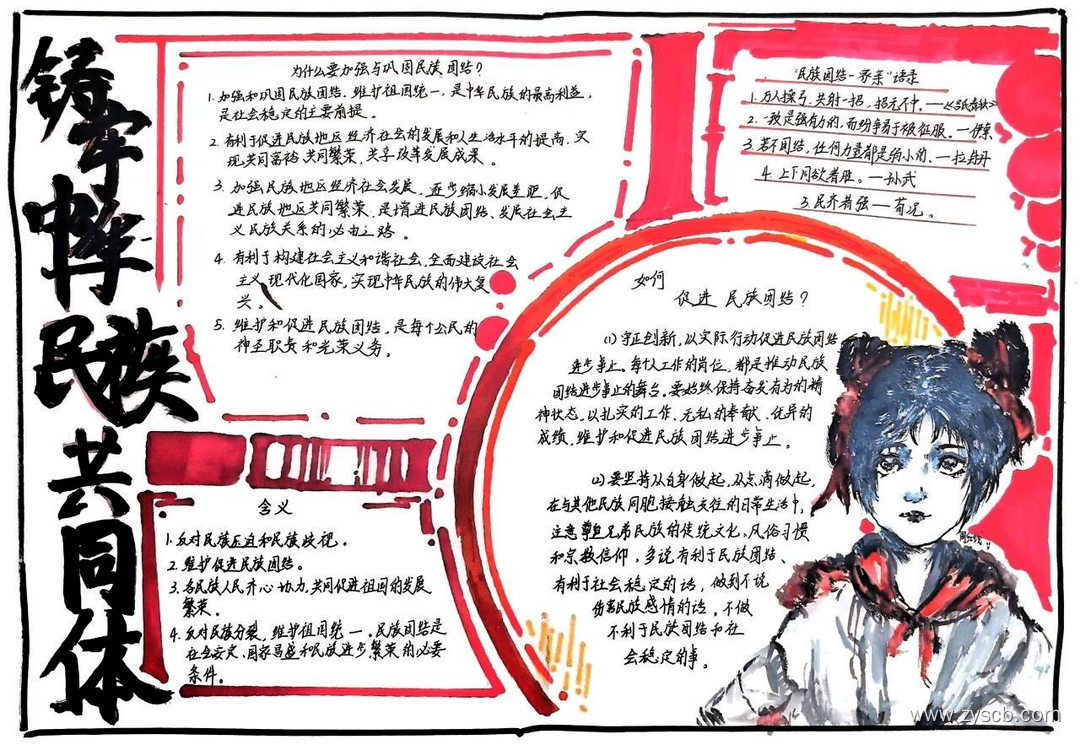 铸牢中华民族共同体
为什么要加强与巩固民族团结?
1. 加强和巩固民族团结，维护祖国统一，是中华民族的最高利益，
是社会稳定的主要前提。
2. 有利于促进民族地区经济社会的发展和人生活水平的提高，实
现共同富裕，共同繁荣，共享改革发展成果。
3. 加强民族地区经济社会发展，逐步缩小发展差距，促
进民族地区共同繁荣，是增进民族团结、发展社会主
义民族关系的必由之路。
4. 有利于构建社会主义和谐社会，全面建设社会
主义现代化国家，实现中华民族的伟大复
兴。
5. 维护和促进民族团结，是每个公民的
神圣职责和光荣义务。
"民族团结一家亲"语录
1. 万人操弓，共射一招，招无不中。—《吕氏春秋》
2. 一致是强有力的，而纷争易于被征服。—伊索
3. 若不团结，任何力量都是弱小的。—拉封丹
4. 上下同欲者胜。—孙武
3. 民齐者强——荀况。
如何
促进民族团结?
(1) 守正创新，以实际行动促进民族团结
进步事业。每个人工作的岗位，都是推动民族
团结进步事业的舞台。要始终保持奋发有为的精
神状态，以扎实的工作、无私的奉献、优异的
成绩，维护和促进民族团结进步事业。
(2) 要坚持从自身做起，从点滴做起，
在与其他民族同胞接触交往的日常生活中，
注意尊重兄弟民族的传统文化、风俗习惯
和宗教信仰，多说有利于民族团结、
有利于社会稳定的话，做到不说
伤害民族感情的话，不做
不利于民族团结和社
会稳定的事。
含义
1. 反对民族压迫和民族歧视。
2. 维护促进民族团结。
3. 各民族人民齐心协力，共同促进祖国的发展
繁荣。
4. 反对民族分裂，维护祖国统一。民族团结是
社会安定、国家昌盛和民族进步繁荣的必要
条件。
www.zyscb.com